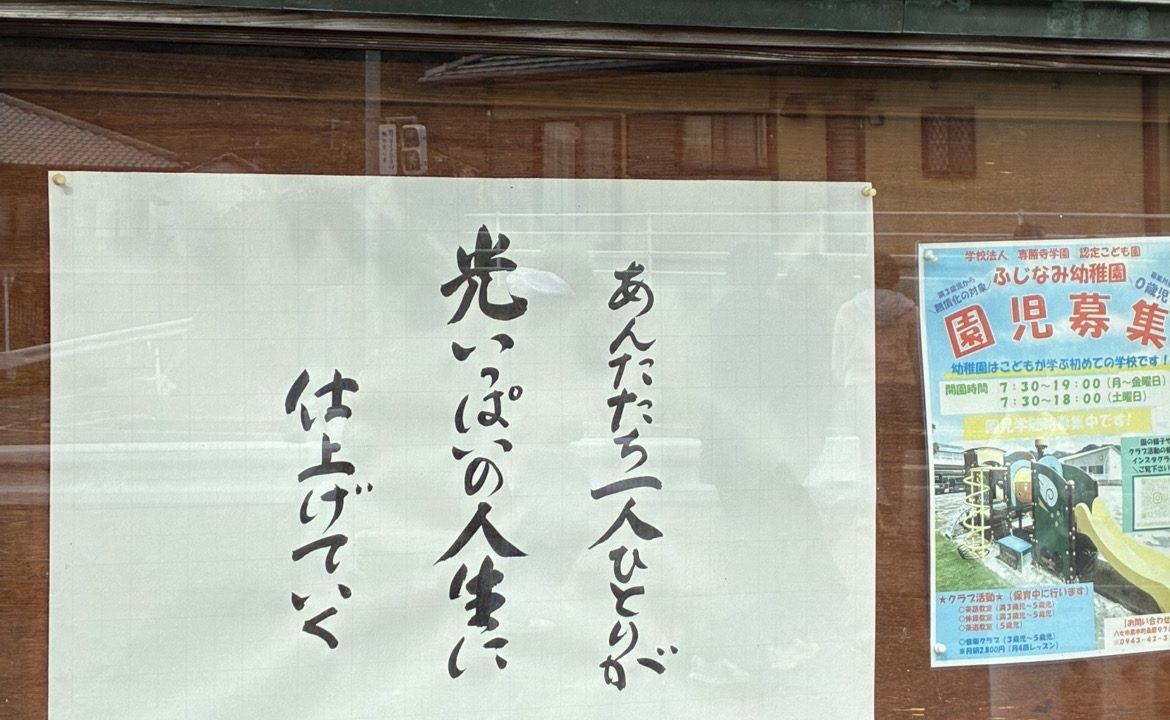 あんたたち一人ひとりが
光いっぱいの人生に
仕上げていく
学校法人 専勝寺学園 認定こども園
ふじなみ幼稚園
満3歳児から
無償化の対象
0歳児
園児募集
幼稚園はこどもが学ぶ初めての学校です!
開園時間 7:30~19:00(月~金曜日)
7:30~18:00(土曜日)
園見学随時募集中です!
園の様子や
クラブ活動の様
インスタグラ
ご覧下さい
★クラブ活動★(保育中に行います)
○英語教室(満3歳児~5歳児)
○体操教室(満3歳児~5歳児)
○茶道教室(5歳児)
○音楽クラブ(3歳児~5歳児)
※月額2,800円(月4回レッスン)
【お問い合わせ
八女市黒木町桑原97
☎0943-42-3